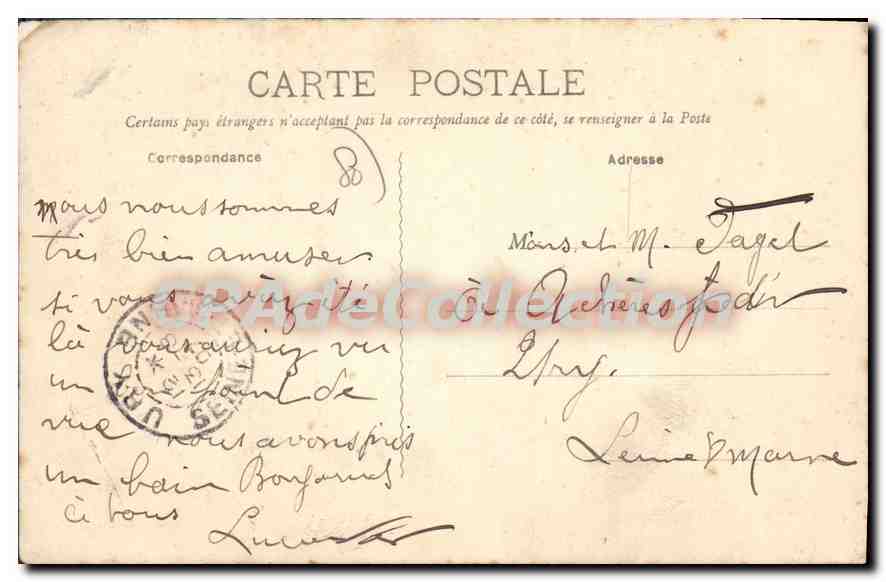 CARTE POSTALE
Certains pays étrangers n'acceptant pas la correspondance de ce côté, se renseigner à la Poste
Correspondance
80
nous nous sommes
très bien amuser
si vous aviez été
là vous auriez vu
un de
vue nous avons pris
un bain Bonjour
à tous
Adresse
Mons et M. Pagel
à Achères
Ury
Seine & Marne
URY SEINE
CPAdeCollection